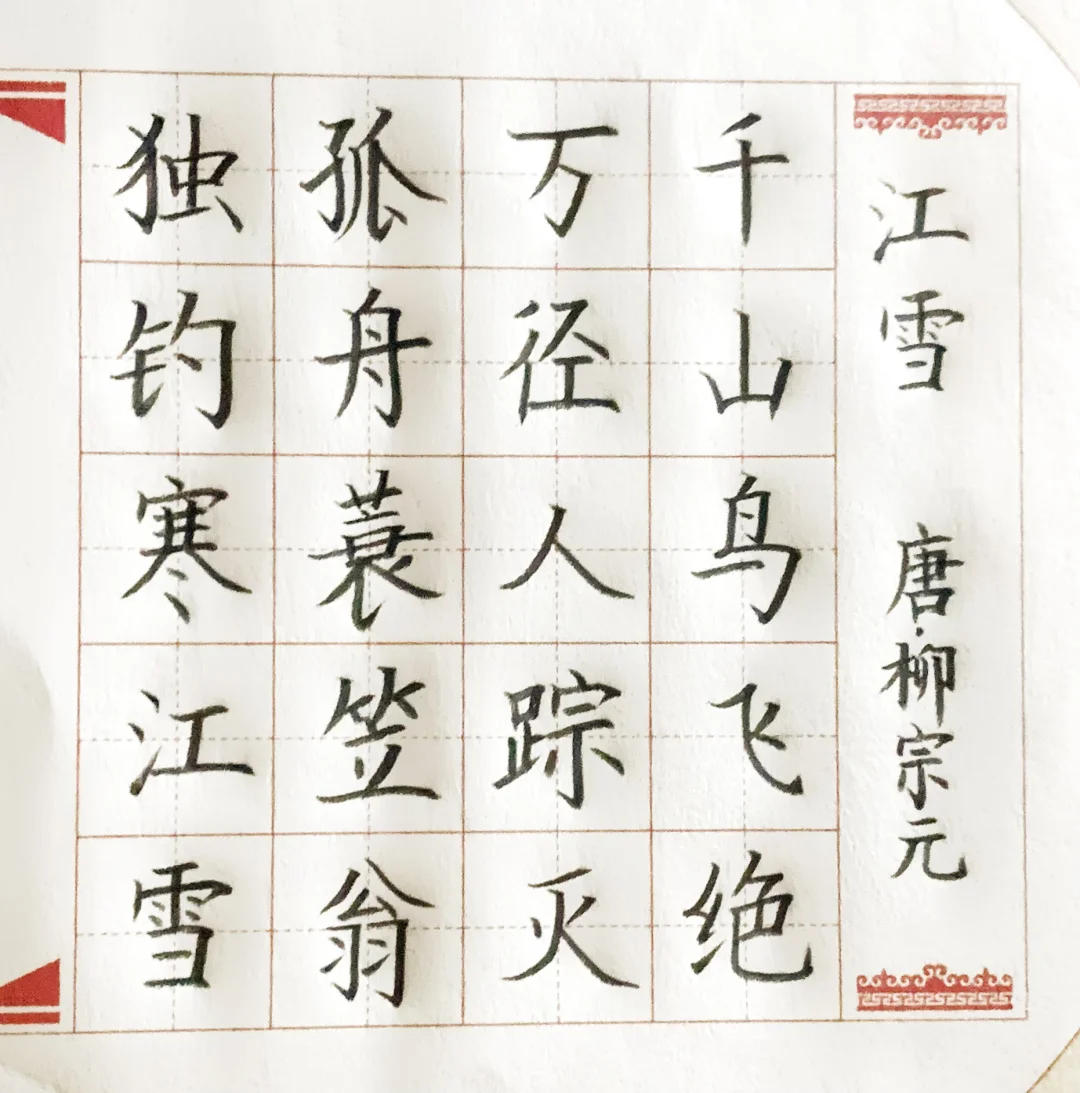 江雪 唐·柳宗元
千山鸟飞绝
万径人踪灭
孤舟蓑笠翁
独钓寒江雪